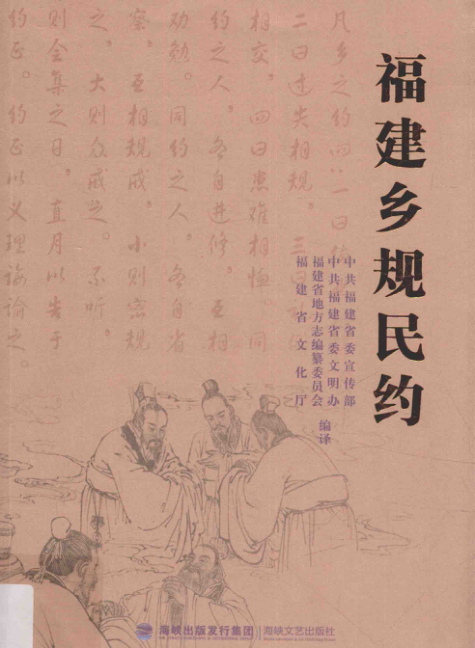 福建乡规民约
中共福建省委宣传部
中共福建省委文明办
福建省地方志编纂委员会
福建省文化厅
编译
凡乡之约四：一曰
二曰过失相规，三曰
相交，四曰患难相恤。同
约之人，各自进修，互相
劝勉。同约之人，各自省
察，互相规戒，小则密规
之，大则众戒之。不听，
则会集之日，直月以告于
约正。约正以义理诲谕之。
海峡出版发行集团
海峡文艺出版社